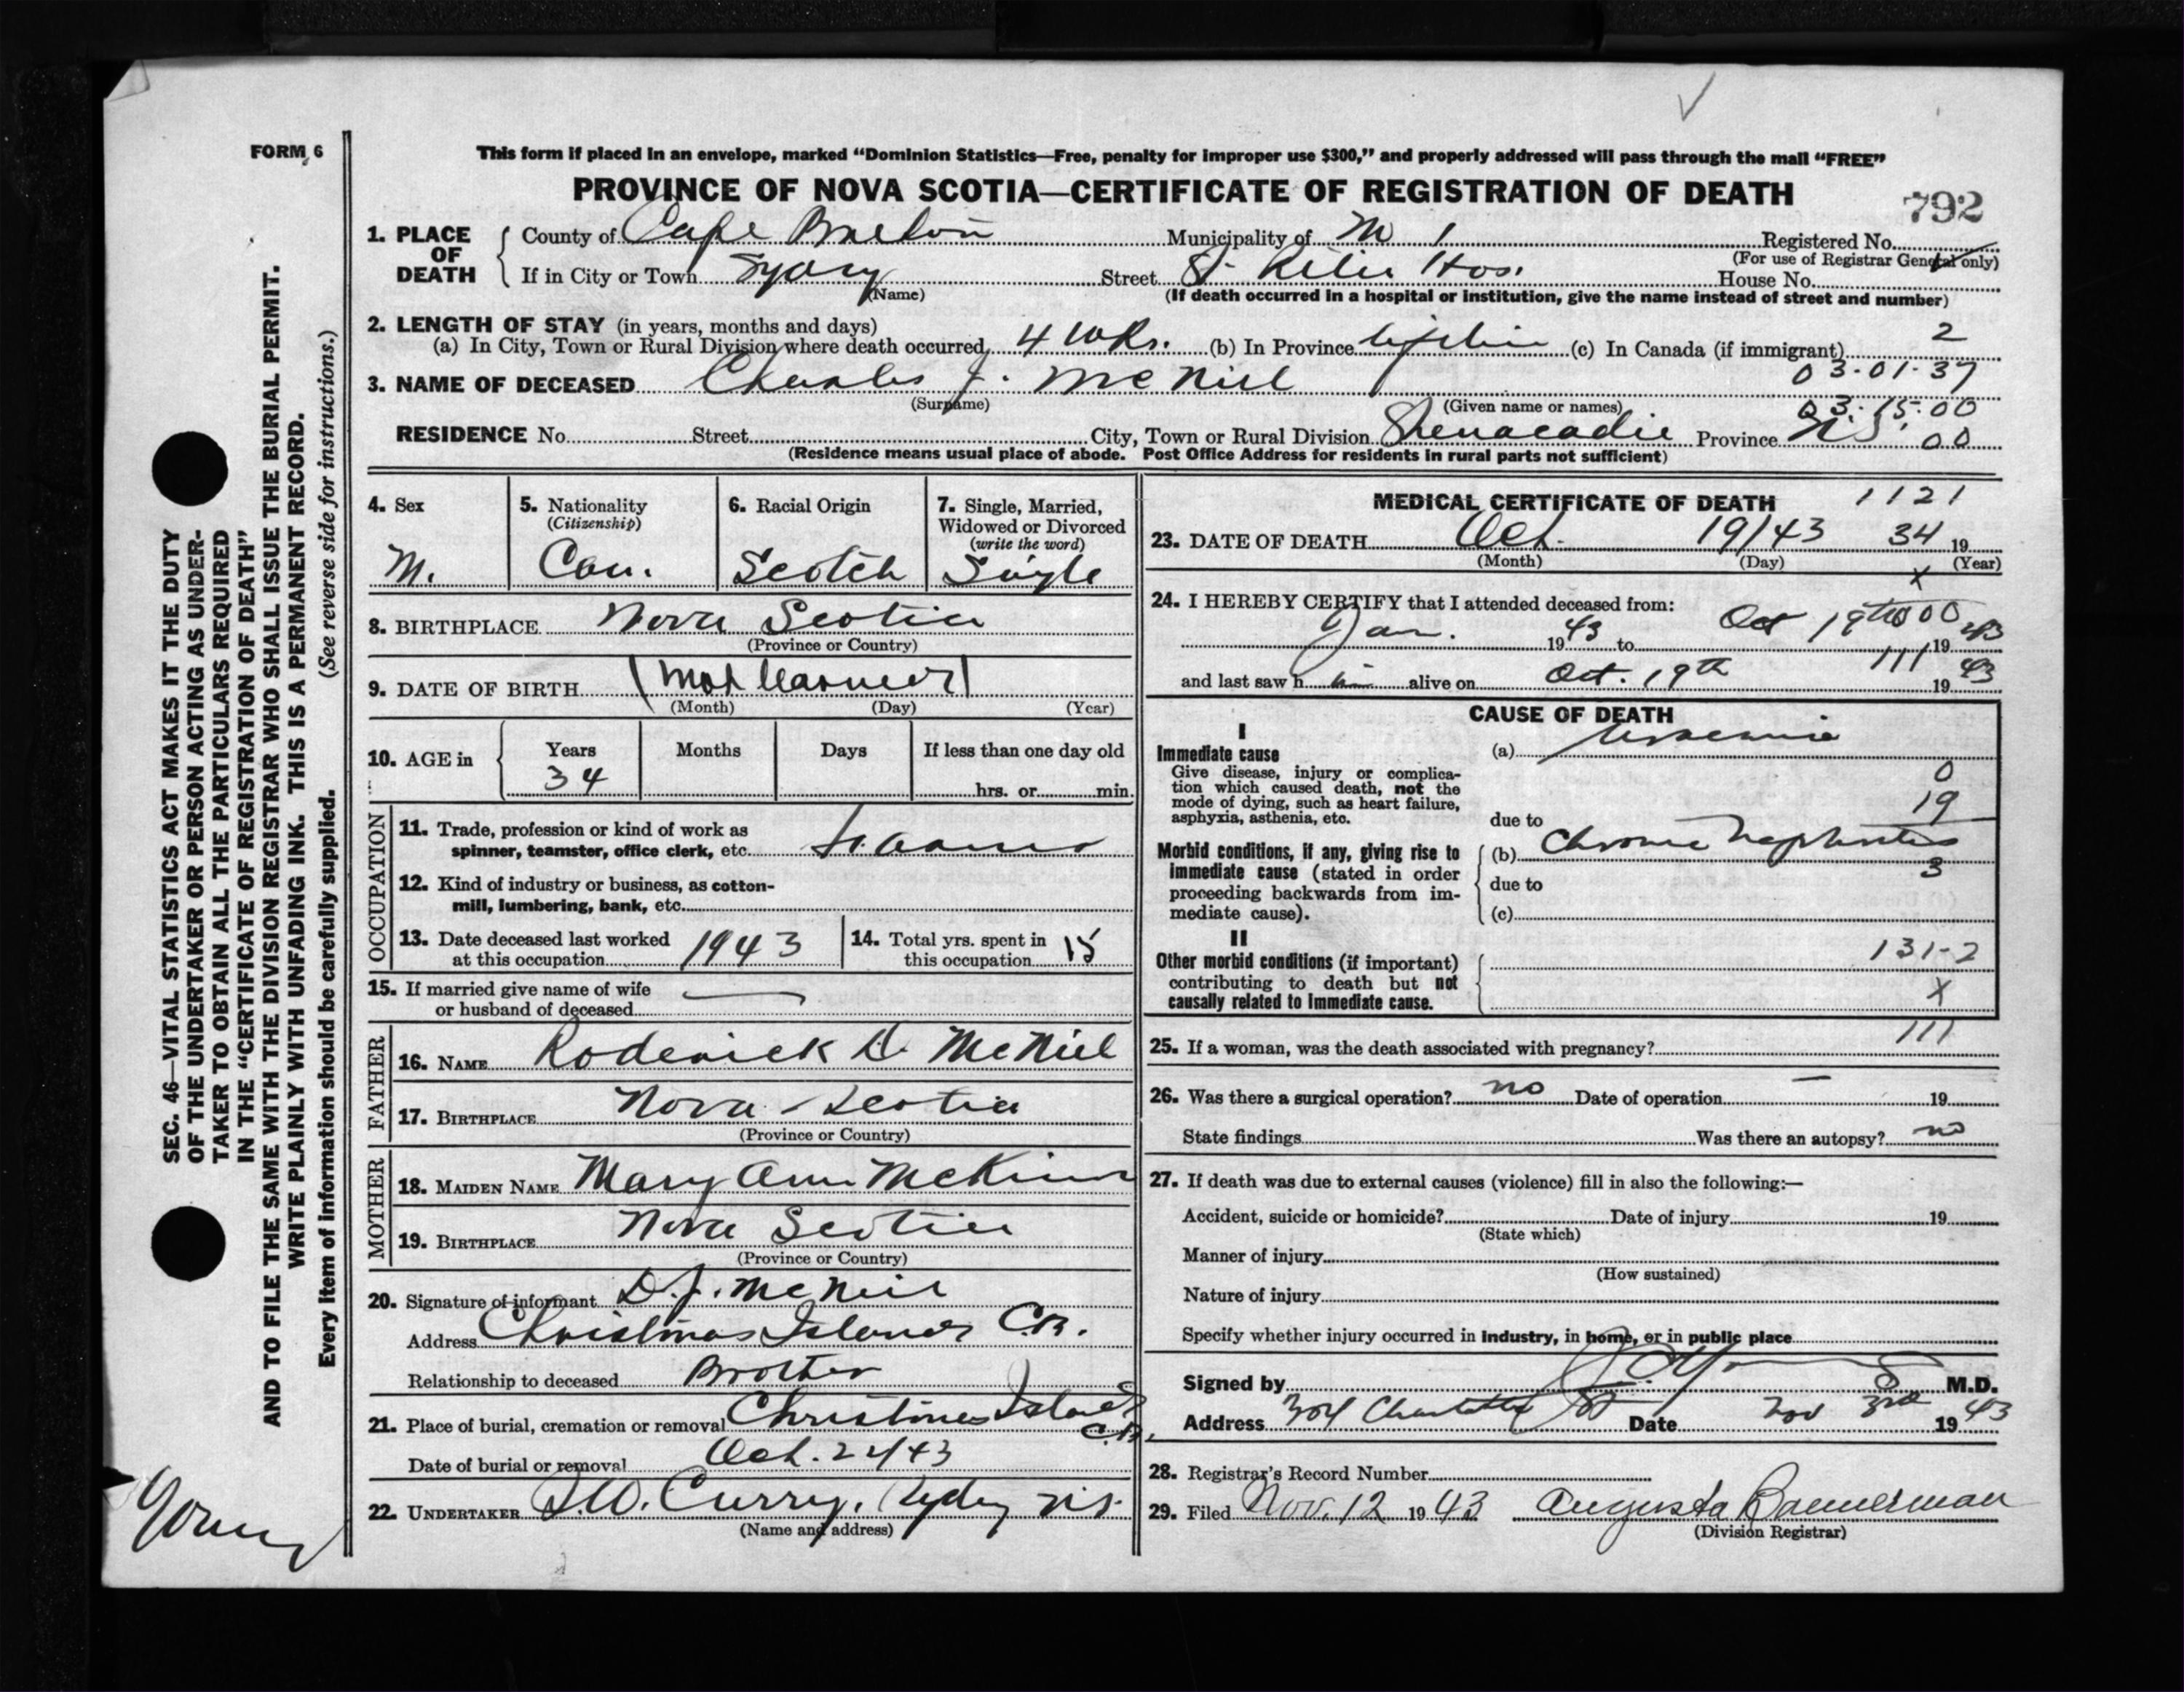 FORM 6
This form if placed in an envelope, marked “Dominion Statistics—Free, penalty for improper use $300,” and properly addressed will pass through the mail “FREE”
PROVINCE OF NOVA SCOTIA—CERTIFICATE OF REGISTRATION OF DEATH
792
1. PLACE OF DEATH
County of Cape Breton Municipality of Registered No.
(For use of Registrar General only)
If in City or Town Sydney Street St. Ritas Hos. House No.
(Name) (If death occurred in a hospital or institution, give the name instead of street and number)
2. LENGTH OF STAY (in years, months and days)
(a) In City, Town or Rural Division where death occurred 4 wks. (b) In Province lifetime (c) In Canada (if immigrant) 2
03-01-37
3. NAME OF DECEASED Charles J. McNiel
(Surname) (Given name or names) 03-15-00
RESIDENCE No. Street City, Town or Rural Division Shenacadie Province N.S. 00
(Residence means usual place of abode. Post Office Address for residents in rural parts not sufficient)
4. Sex
M.
5. Nationality
(Citizenship)
Can.
6. Racial Origin
Scotch
7. Single, Married, Widowed or Divorced
(write the word)
Single
8. BIRTHPLACE Nova Scotia
(Province or Country)
9. DATE OF BIRTH (not
(Month) (Day) (Year)
10. AGE in
Years Months Days If less than one day old
34 hrs. or min.
OCCUPATION
11. Trade, profession or kind of work as
spinner, teamster, office clerk, etc.
12. Kind of industry or business, as cotton-
mill, lumbering, bank, etc.
13. Date deceased last worked
at this occupation 1943
14. Total yrs. spent in
this occupation 15
15. If married give name of wife
or husband of deceased
FATHER
16. NAME Roderick D. McNiel
17. BIRTHPLACE Nova Scotia
(Province or Country)
MOTHER
18. MAIDEN NAME Mary Ann McKinnon
19. BIRTHPLACE Nova Scotia
(Province or Country)
20. Signature of informant D.J. McNeil
Address Christmas Island C.B.
Relationship to deceased Brother
21. Place of burial, cremation or removal Christmas Island
C.B.
Date of burial or removal Oct. 22/43
22. UNDERTAKER D.W. Curry, Sydney N.S.
(Name and address)
MEDICAL CERTIFICATE OF DEATH 1121
23. DATE OF DEATH Oct. 19/43 34 19
(Month) (Day) (Year)
X
24. I HEREBY CERTIFY that I attended deceased from:
Jan. 1943 to Oct 19th 1943
111
and last saw him alive on Oct. 19th 1943
CAUSE OF DEATH
I
Immediate cause (a) Uraemia
Give disease, injury or complica-
tion which caused death, not the
mode of dying, such as heart failure,
asphyxia, asthenia, etc.
0
19
due to
Morbid conditions, if any, giving rise to
immediate cause (stated in order
proceeding backwards from im-
mediate cause).
(b) Chronic Nephritis
3
due to
(c)
II
Other morbid conditions (if important)
contributing to death but not
causally related to immediate cause.
131-2
X
111
25. If a woman, was the death associated with pregnancy?
26. Was there a surgical operation? no Date of operation — 19
State findings Was there an autopsy? no
27. If death was due to external causes (violence) fill in also the following:—
Accident, suicide or homicide? Date of injury 19
(State which)
Manner of injury
(How sustained)
Nature of injury
Specify whether injury occurred in industry, in home, or in public place
Signed by M.D.
Address 304 Charlotte St Date Nov 3rd 1943
28. Registrar's Record Number
29. Filed Nov. 12 1943 Augusta Bannerman
(Division Registrar)
SEC. 46—VITAL STATISTICS ACT MAKES IT THE DUTY
OF THE UNDERTAKER OR PERSON ACTING AS UNDER-
TAKER TO OBTAIN ALL THE PARTICULARS REQUIRED
IN THE “CERTIFICATE OF REGISTRATION OF DEATH”
AND TO FILE THE SAME WITH THE DIVISION REGISTRAR WHO SHALL ISSUE THE BURIAL PERMIT.
WRITE PLAINLY WITH UNFADING INK. THIS IS A PERMANENT RECORD.
Every item of information should be carefully supplied. (See reverse side for instructions.)
Young